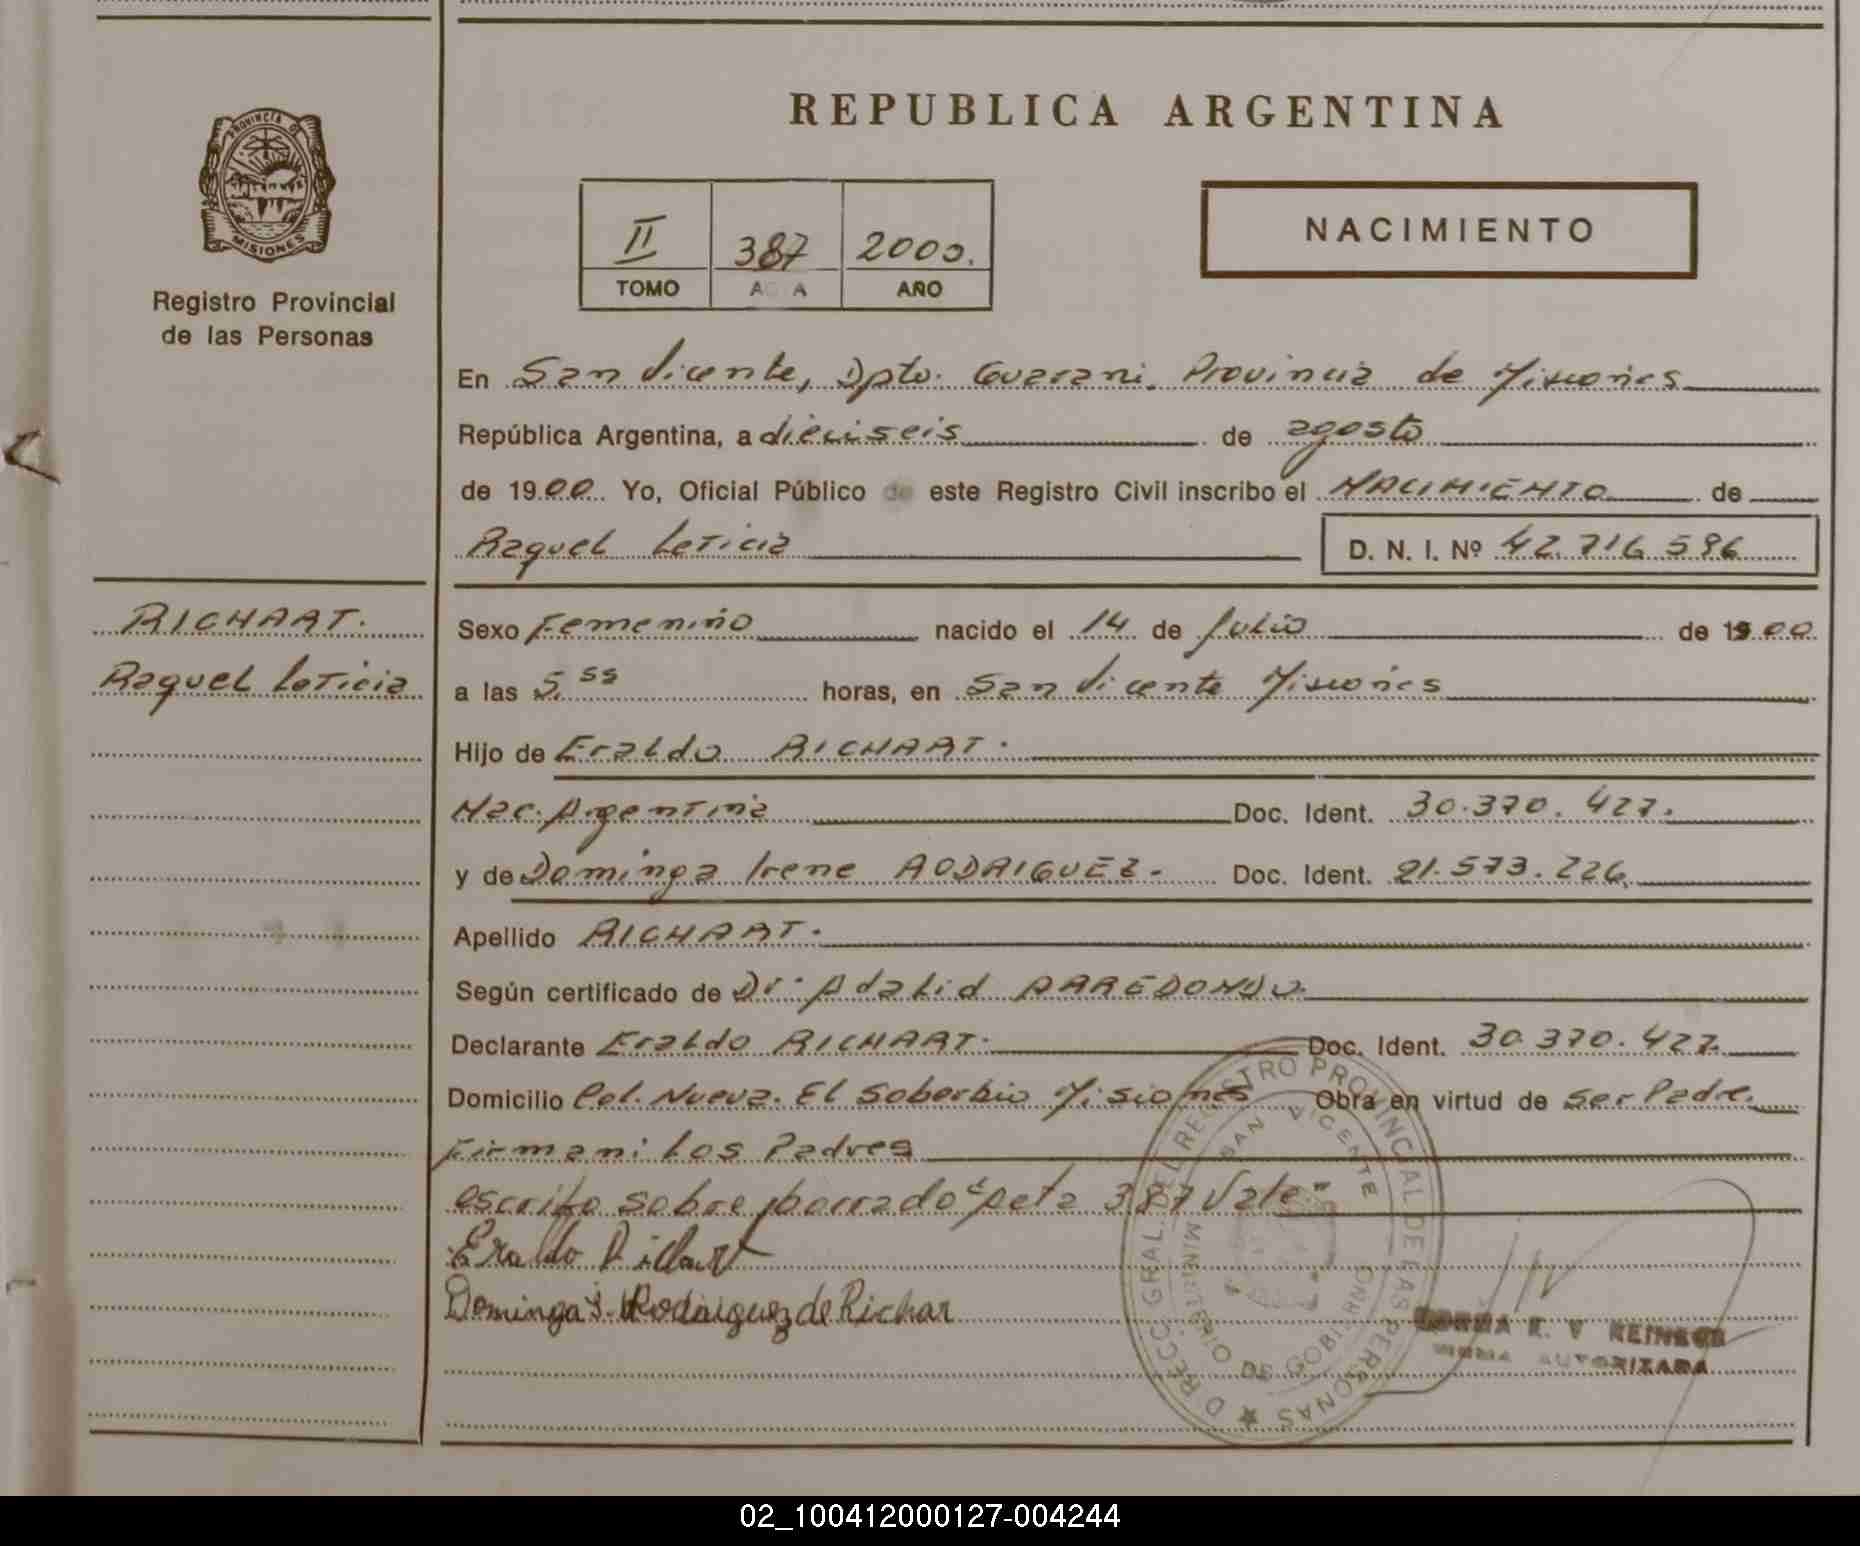 REPUBLICA ARGENTINA
PROVINCIA DE
MISIONES
Registro Provincial
de las Personas
II 387 2000.
TOMO A A AÑO
NACIMIENTO
En San Vicente, Dpto. Guarani. Provincia de Misiones
República Argentina, a dieciseis de agosto
de 1900 Yo, Oficial Público de este Registro Civil inscribo el NACIMIENTO de
Raquel Leticia D. N. I. Nº 42.716.596
RICHART.
Raquel Leticia
Sexo Femenino nacido el 14 de Julio de 1900
a las 5.55 horas, en San Vicente Misiones
Hijo de Eraldo RICHART.
Nac. Argentina Doc. Ident. 30.370.427.
y de Dominga Irene RODRIGUEZ. Doc. Ident. 21.573.226.
Apellido RICHART.
Según certificado de Dr. Adalid ARREDONDO.
Declarante Eraldo RICHART. Doc. Ident. 30.370.427.
Domicilio Col. Nueva. El Soberbio Misiones Obra en virtud de ser Padre.
Firman: Los Padres
escrito sobre borrado "acta 387 Vale"
Eraldo
Dominga I. Rodriguez de Richar
DIRECC. GRAL. DEL REGISTRO PROVINCIAL DE LAS PERSONAS
SAN VICENTE
MINISTERIO DE GOBIERNO
E. V REINECK
FIRMA AUTORIZADA
02_100412000127-004244